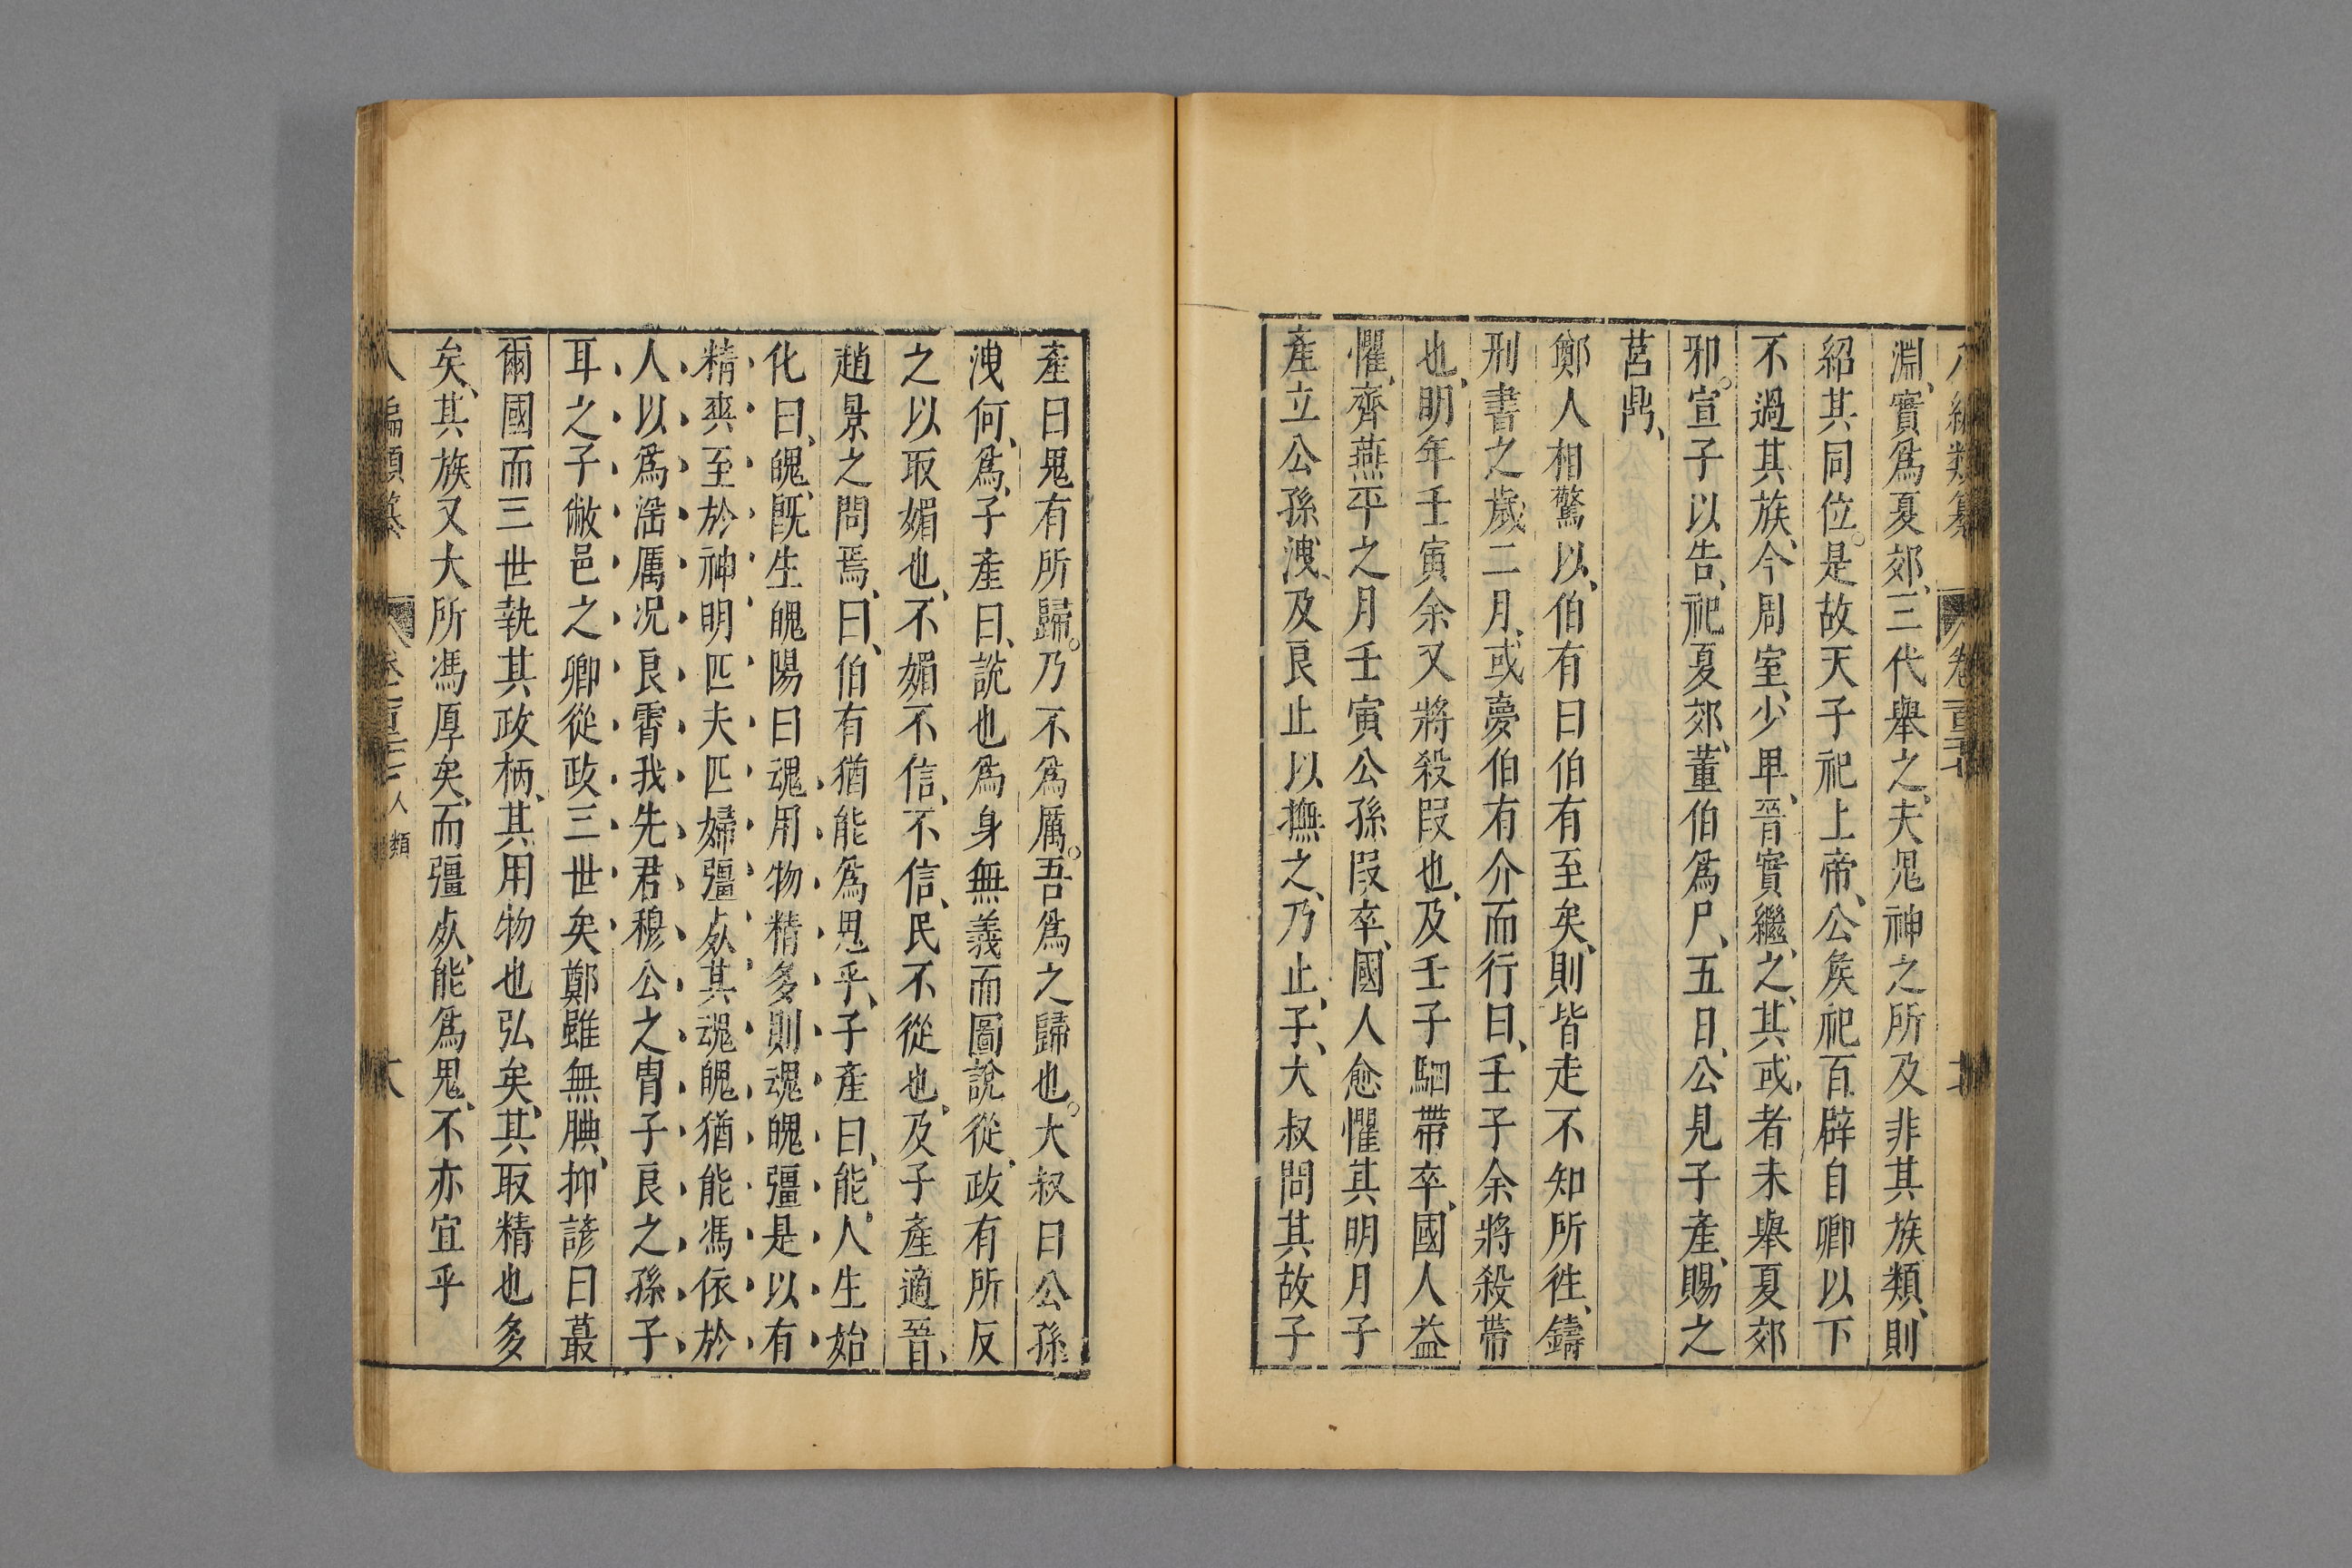 淵、實爲夏郊、三代舉之、夫鬼神之所及非其族類、則
紹其同位。是故天子祀上帝、公矦祀百辟自卿以下
不過其族、今周室、少𤰞、晉實繼、之、其或者未舉夏郊
邪。宣子以告、祀夏郊、董伯爲尸、五日、公見子產、賜之
莒鼎、
鄭人相驚以、伯有曰伯有至矣、則皆走不知所徃、鑄
刑書之歲二月、或夢伯有介而行曰、壬子余將殺帶
也、明年壬寅余又將殺段也、及壬子駟帶卒、國人益
懼、齊燕平之月壬寅公孫段卒、國人愈懼其明月子
產立公孫洩、及良止以撫之、乃止、子、大叔問其故子
產曰鬼有所歸。乃不爲厲。吾爲之歸也。大叔曰公孫
洩何、爲、子產曰、說也爲身無義而圖說從、政有所反
之以取媚也、不媚不信、不信、民不從也、及子產適晉、
趙景之問焉、曰、伯有猶能爲鬼乎、子產曰、能、人生始
化曰、魄、旣生魄陽曰魂用物精多則魂魄彊是以有
精爽至於神明匹夫匹婦彊死其魂魄猶能馮依於
人以爲滛厲况良霄我先君穆公之胄子良之孫子
耳之子敝邑之卿從政三世矣鄭雖無腆、抑諺曰蕞
爾國而三世執其政柄、其用物也弘矣、其取精也多
矣、其族又大所馮厚矣、而彊死、能爲鬼、不亦宜乎